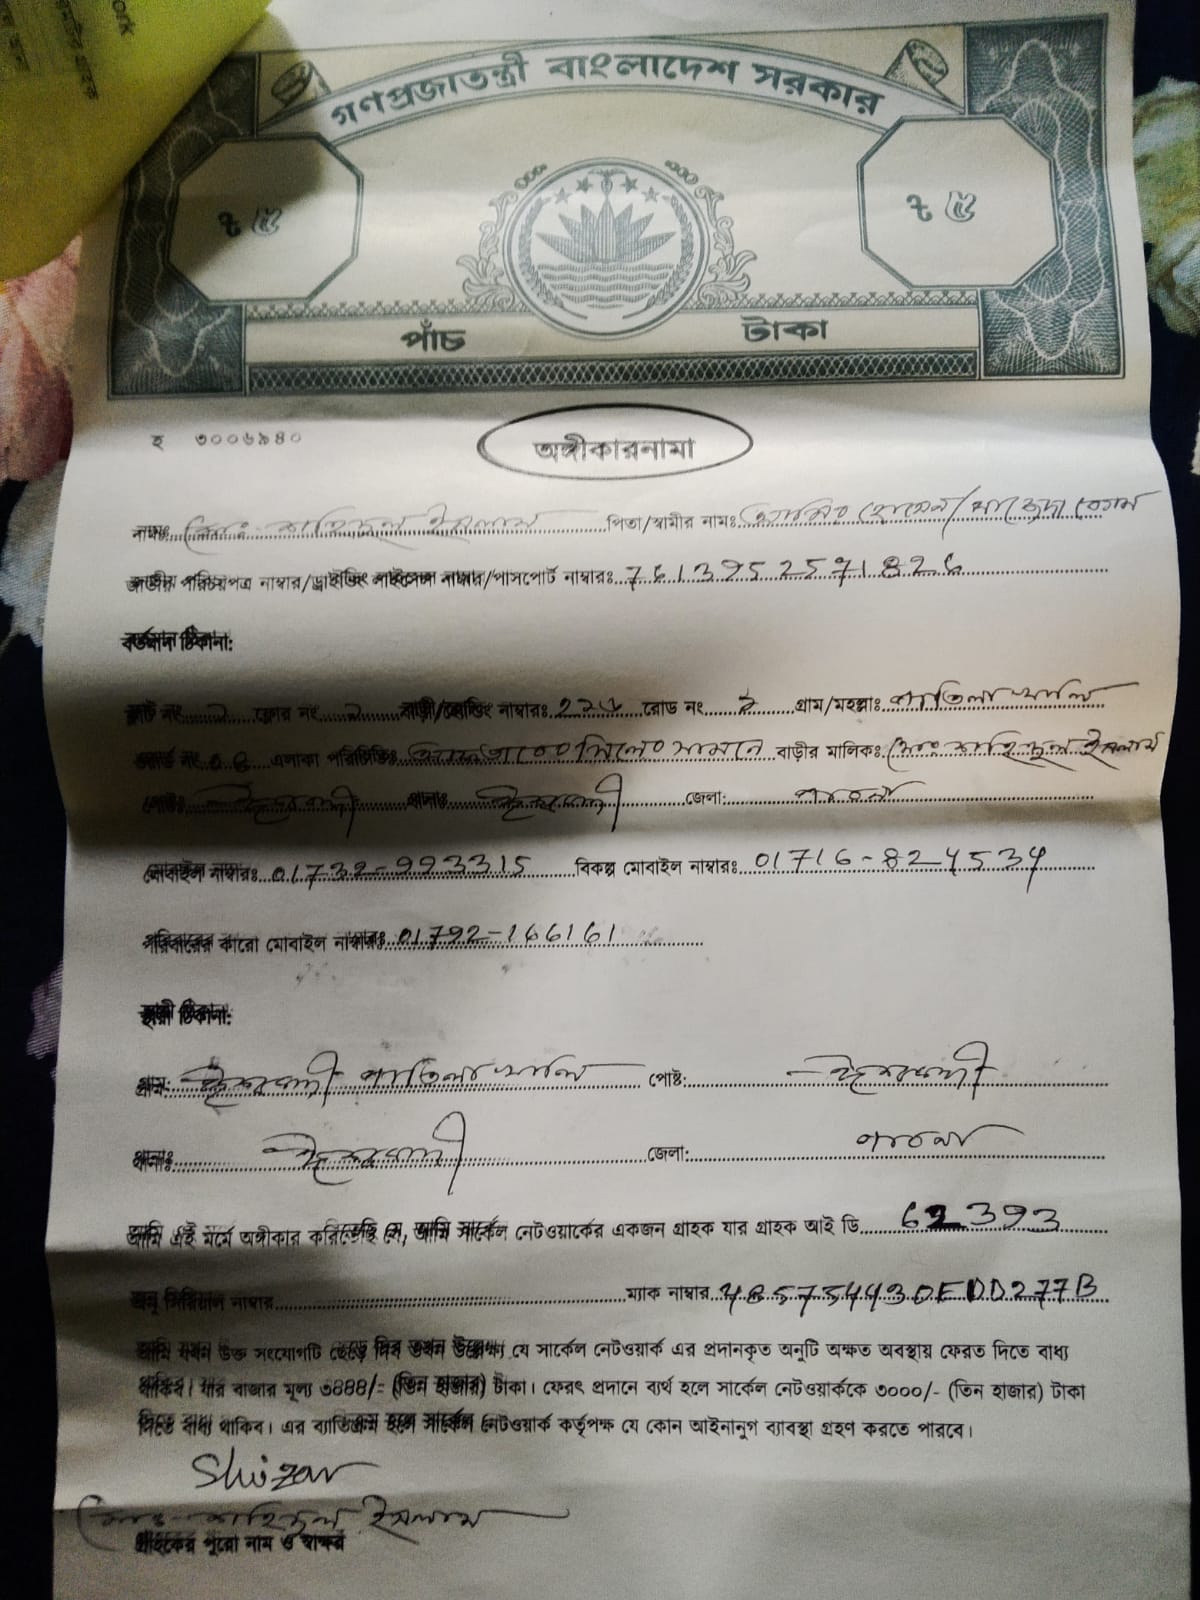 গণপ্রজাতন্ত্রী বাংলাদেশ সরকার
৳ ৫ ৳ ৫
পাঁচ টাকা
হ ৩০০৬৯৪০
অঙ্গীকারনামা
নামঃ মোঃ শাহিদুল ইসলাম পিতা/স্বামীর নামঃ
জাতীয় পরিচয়পত্র নাম্বার/ড্রাইভিং লাইসেন্স নাম্বার/পাসপোর্ট নাম্বারঃ 7613952571826
বর্তমান ঠিকানা:
ফ্লাট নং ফ্লোর নং বাড়ী/হোল্ডিং নাম্বারঃ রোড নং গ্রাম/মহল্লাঃ পাতিলাখালি
ওয়ার্ড নং এলাকা পরিচিতিঃ সামনে বাড়ীর মালিকঃ মোঃ শাহিদুল ইসলাম
পোষ্টঃ ঈশ্বরদী থানাঃ ঈশ্বরদী জেলা: পাবনা
মোবাইল নাম্বারঃ 01732-993315 বিকল্প মোবাইল নাম্বারঃ 01716-824534
পরিবারের কারো মোবাইল নাম্বারঃ 01792-166161
স্থায়ী ঠিকানা:
গ্রাম: ঈশ্বরদী পাতিলাখালি পোষ্ট: ঈশ্বরদী
থানাঃ ঈশ্বরদী জেলা: পাবনা
আমি এই মর্মে অঙ্গীকার করিতেছি যে, আমি সার্কেল নেটওয়ার্কের একজন গ্রাহক যার গ্রাহক আই ডি 62393
অনু সিরিয়াল নাম্বার ম্যাক নাম্বার 485754430FDD277B
আমি যখন উক্ত সংযোগটি ছেড়ে দিব তখন উল্লেক্ষ্য যে সার্কেল নেটওয়ার্ক এর প্রদানকৃত অনুটি অক্ষত অবস্থায় ফেরত দিতে বাধ্য
থাকিব। যার বাজার মূল্য ৩৪৪৪/- (তিন হাজার) টাকা। ফেরৎ প্রদানে ব্যর্থ হলে সার্কেল নেটওয়ার্ককে ৩০০০/- (তিন হাজার) টাকা
দিতে বাধ্য থাকিব। এর ব্যাতিক্রম হলে সার্কেল নেটওয়ার্ক কর্তৃপক্ষ যে কোন আইনানুগ ব্যাবস্থা গ্রহণ করতে পারবে।
মোঃ শাহিদুল ইসলাম
গ্রাহকের পুরো নাম ও স্বাক্ষর